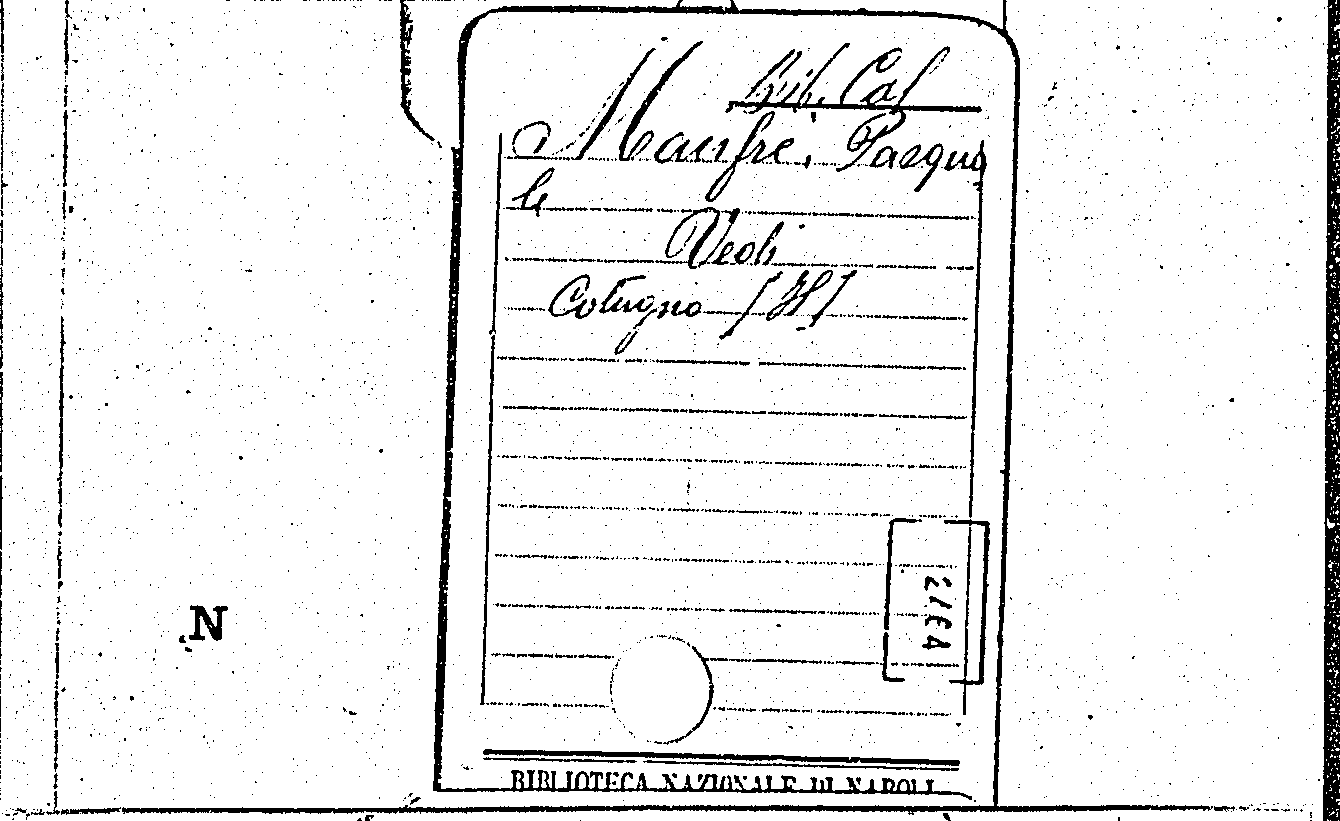 Bib. Cal
Manfré, Pasqua
le
Vedi
Cotugno [H]
N
BIBLIOTECA NAZIONALE DI NAPOLI